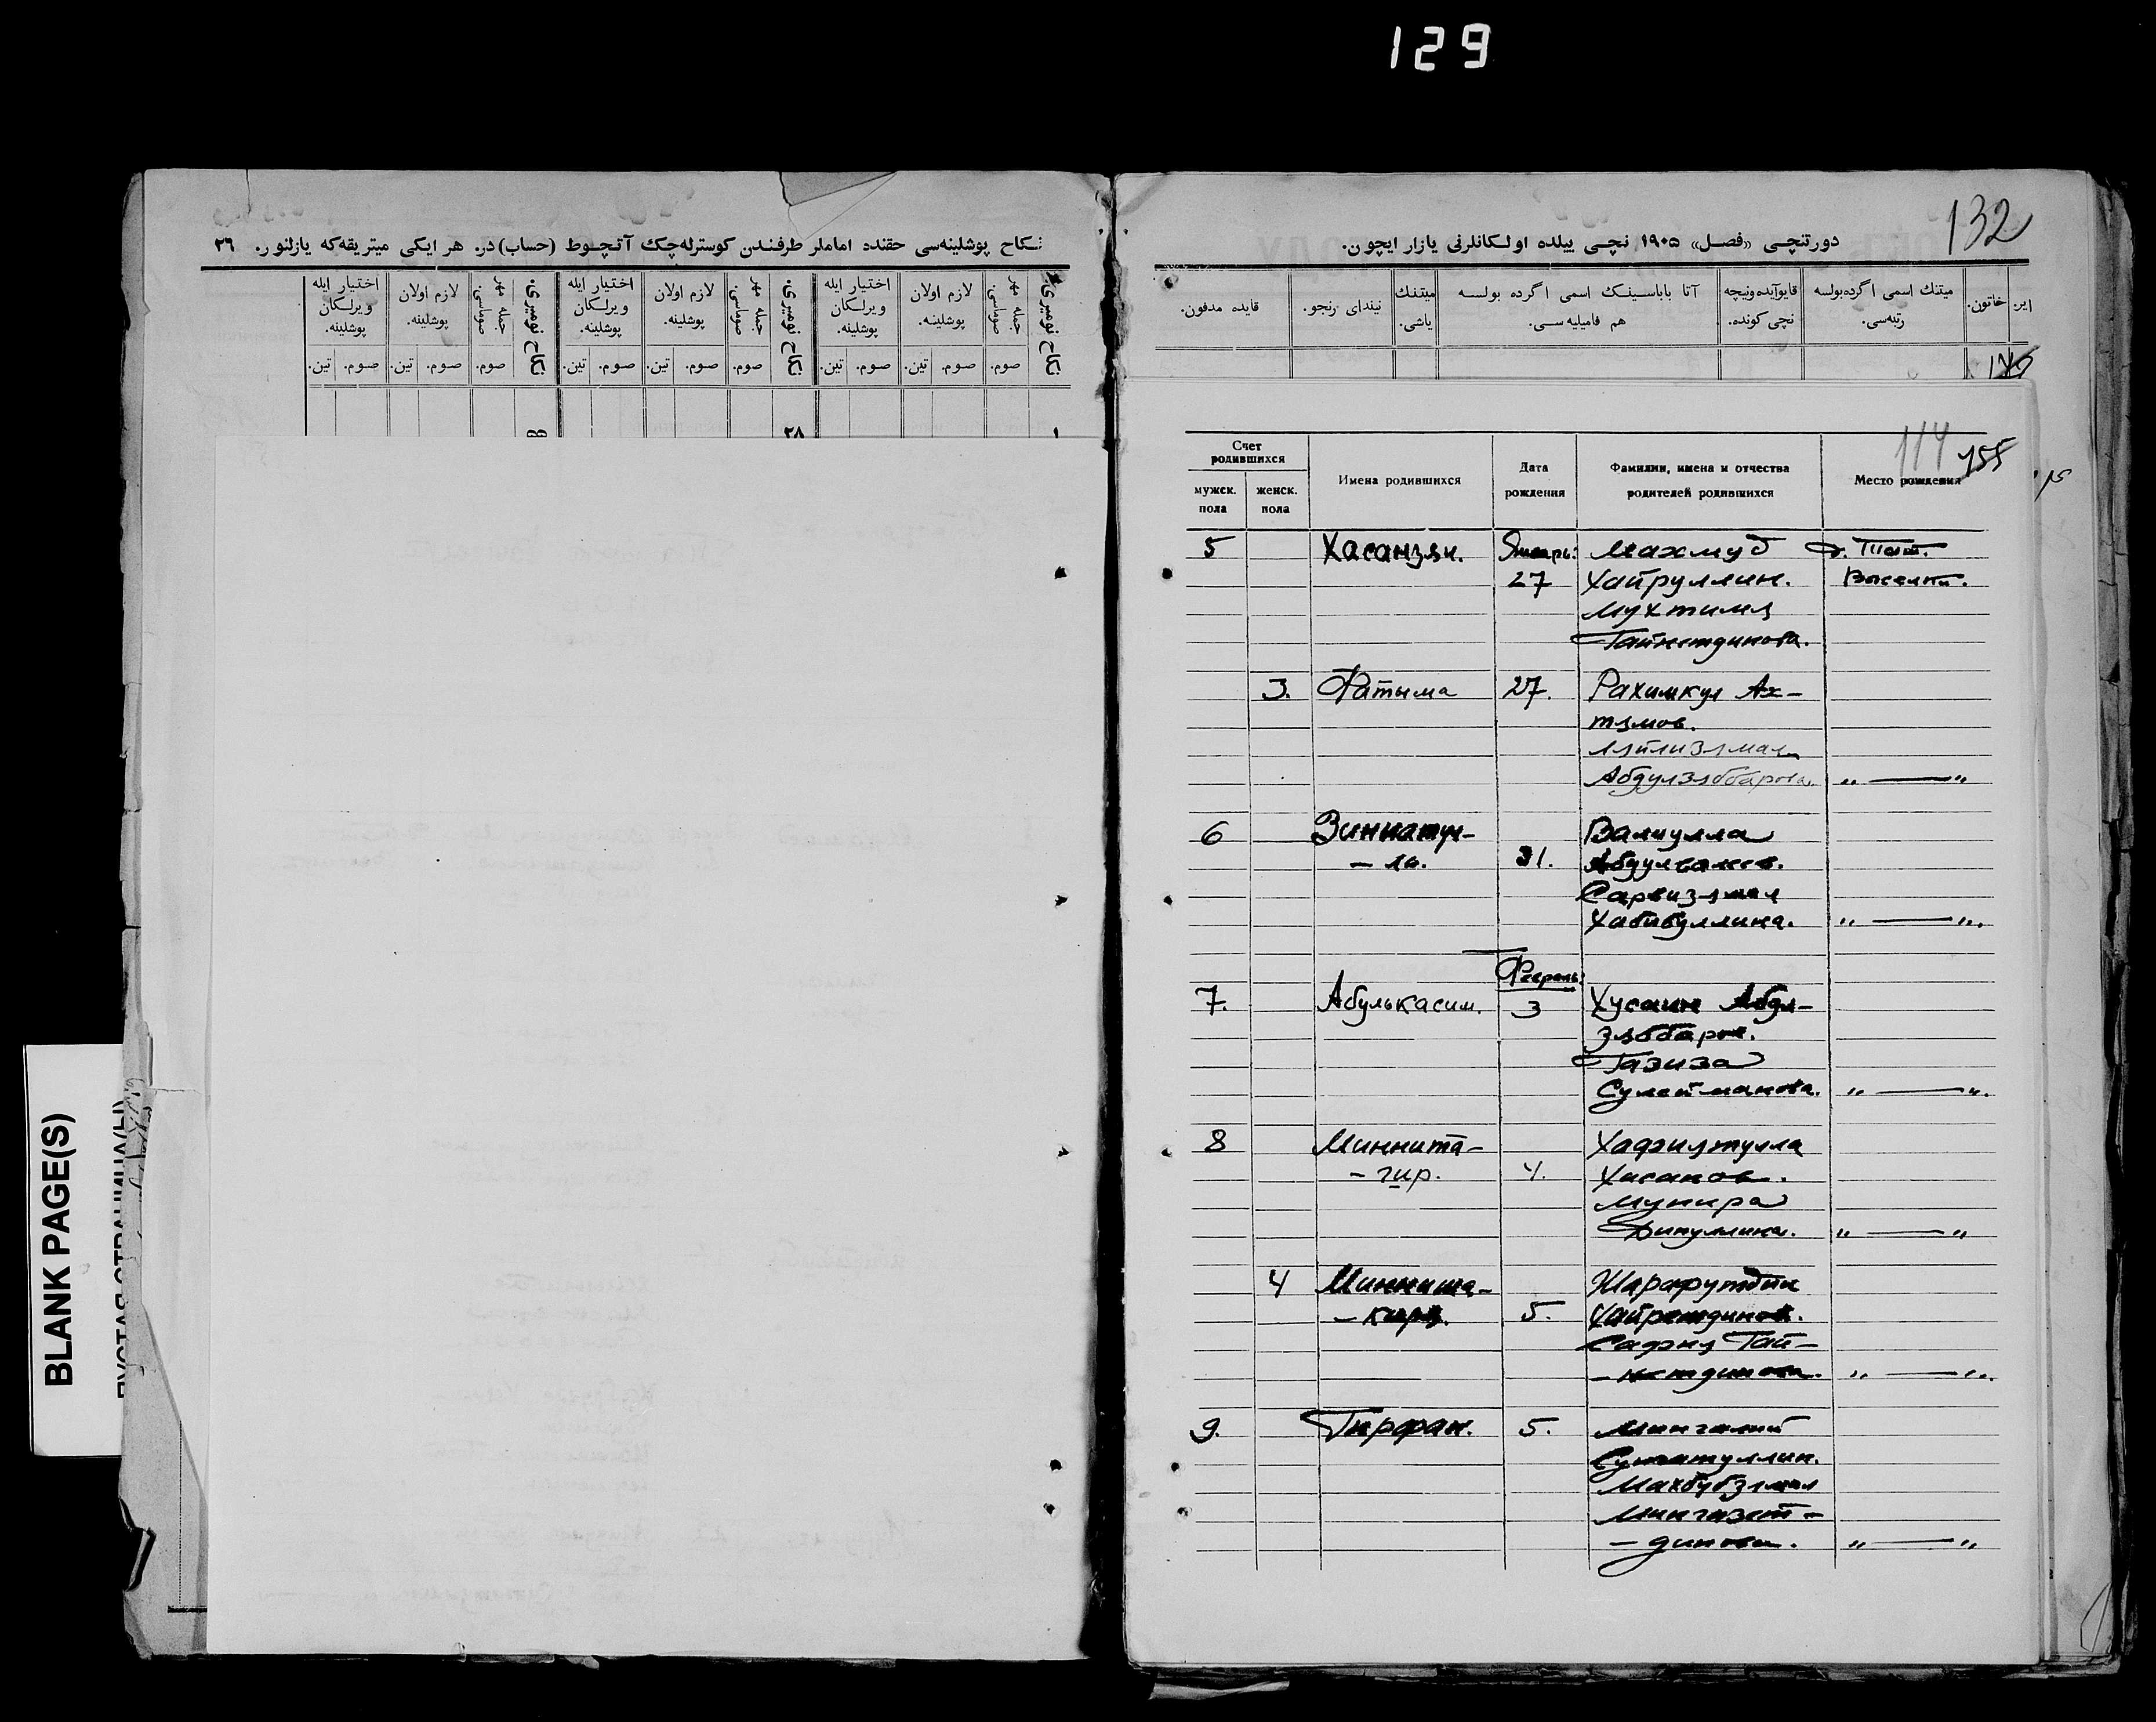 129
نكاح پوشلينه‌سى حقنده اماملر طرفندن كوسترله‌چك آتچوط (حساب) در. هر ايكى ميتريقه‌كه يازلنور. ٢٦
نكاح نوميرى.
جمله مهر صوماسى.
لازم اولان پوشلينه.
اختيار ايله ويرلكان پوشلينه.
نكاح نوميرى.
جمله مهر صوماسى.
لازم اولان پوشلينه.
اختيار ايله ويرلكان پوشلينه.
نكاح نوميرى.
جمله مهر صوماسى.
لازم اولان پوشلينه.
اختيار ايله ويرلكان پوشلينه.
صوم. صوم. تين. صوم. تين. صوم. صوم. تين. صوم. تين. صوم. صوم. تين. صوم. تين.
١ ٢٨
BLANK PAGE(S)
132
دورتنچى «فصل» ١٩٠٥ نچى ييلده اولكانلرنى يازار ايچون.
اير. خاتون. ميتنك اسمى اگرده بولسه رتبه‌سى. قايو آيده ونيچه نچى كونده. آتا باباسينك اسمى اگرده بولسه هم فاميليه‌سى. ميتنك ياشى. نينداى رنجو. قايده مدفون.
114 155
Счет родившихся
мужск. пола
женск. пола
Имена родившихся
Дата рождения
Фамилии, имена и отчества родителей родившихся
Место рождения
5 Хасанзян. Январь: Махмуд д. Тат.
27 Хайруллин. Выселки.
Мухтимя
Гайнетдинова.
3. Фатыма 27. Рахимкул Ах-
тямов.
Ляйлизямал
Абдулзяббарова. „ — „
6 Зиннатул- Валиулла
- ла. 31. Абдулвалеев.
Сарвизямал
Хабибуллина. „ — „.
Февраль:
7. Абулькасим. 3 Хусаин Абдул-
зяббаров.
Газиза
Сулейманова. „ — „.
8 Миннита- Хафизятулла
- гир. 4. Хасанов.
Мунира
Динуллина. „ — „
4 Минниша- Шарафутдин
- киря. 5. Хайретдинов.
Сафия Гай-
- нетдинова. „ — „.
9. Гирфан. 5. Мингалий
Сунгатуллин.
Махбубзямал
Мингазет-
- динова. „ — „